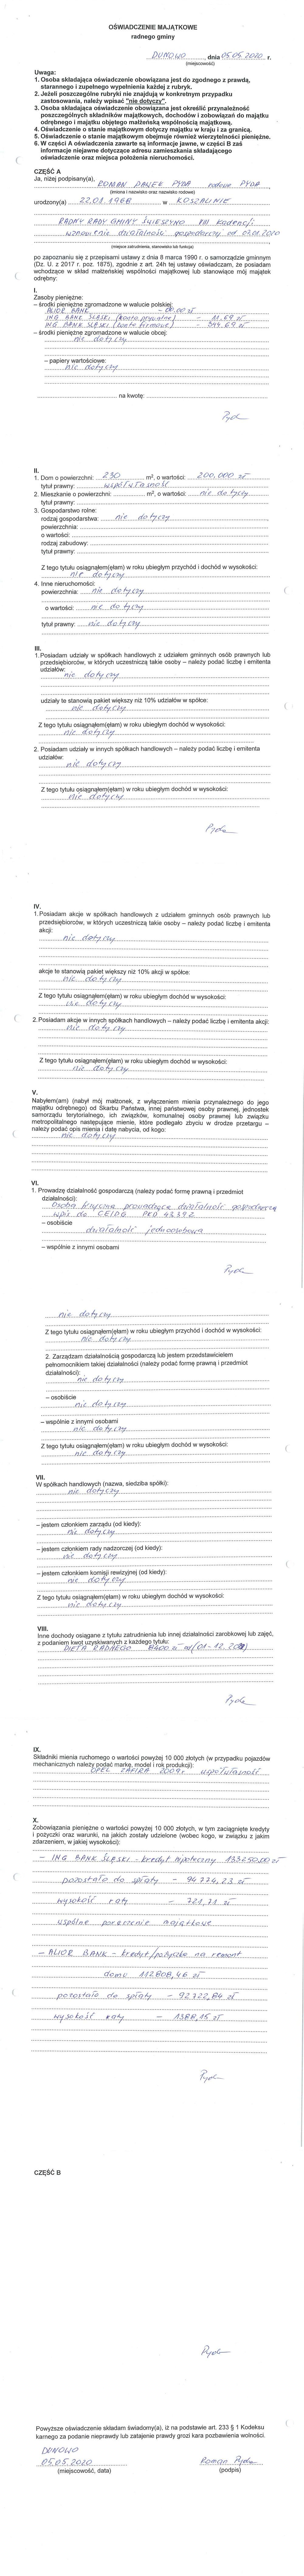 OŚWIADCZENIE MAJĄTKOWE
radnego gminy
DUNOWO, dnia 05.05.2020 r.
(miejscowość)
Uwaga:
1. Osoba składająca oświadczenie obowiązana jest do zgodnego z prawdą,
starannego i zupełnego wypełnienia każdej z rubryk.
2. Jeżeli poszczególne rubryki nie znajdują w konkretnym przypadku
zastosowania, należy wpisać "nie dotyczy".
3. Osoba składająca oświadczenie obowiązana jest określić przynależność
poszczególnych składników majątkowych, dochodów i zobowiązań do majątku
odrębnego i majątku objętego małżeńską wspólnością majątkową.
4. Oświadczenie o stanie majątkowym dotyczy majątku w kraju i za granicą.
5. Oświadczenie o stanie majątkowym obejmuje również wierzytelności pieniężne.
6. W części A oświadczenia zawarte są informacje jawne, w części B zaś
informacje niejawne dotyczące adresu zamieszkania składającego
oświadczenie oraz miejsca położenia nieruchomości.
CZĘŚĆ A
Ja, niżej podpisany(a), ROMAN PAWEŁ PYDA rodowe PYDA,
(imiona i nazwisko oraz nazwisko rodowe)
urodzony(a) 22.01.1968 w KOSZALINIE
RADNY RADY GMINY ŚWIESZYNO VIII kadencji
wznowienie działalności gospodarczej od 03.01.2020
(miejsce zatrudnienia, stanowisko lub funkcja)
po zapoznaniu się z przepisami ustawy z dnia 8 marca 1990 r. o samorządzie gminnym
(Dz. U. z 2017 r. poz. 1875), zgodnie z art. 24h tej ustawy oświadczam, że posiadam
wchodzące w skład małżeńskiej wspólności majątkowej lub stanowiące mój majątek
odrębny:
I.
Zasoby pieniężne:
– środki pieniężne zgromadzone w walucie polskiej:
ALIOR BANK - 00.00 zł
ING BANK ŚLĄSKI (konto prywatne) - 11,69 zł
ING BANK ŚLĄSKI (konto firmowe) - 344,69 zł
– środki pieniężne zgromadzone w walucie obcej:
nie dotyczy
– papiery wartościowe:
nie dotyczy
na kwotę:
Pyda
II.
1. Dom o powierzchni: 230 m², o wartości: 200,000 zł
tytuł prawny: współwłasność
2. Mieszkanie o powierzchni: m², o wartości: nie dotyczy
3. Gospodarstwo rolne:
rodzaj gospodarstwa: nie dotyczy
powierzchnia:
o wartości:
rodzaj zabudowy:
tytuł prawny:
Z tego tytułu osiągnąłem(ęłam) w roku ubiegłym przychód i dochód w wysokości:
nie dotyczy
4. Inne nieruchomości:
powierzchnia: nie dotyczy
o wartości: nie dotyczy
tytuł prawny: nie dotyczy
III.
1. Posiadam udziały w spółkach handlowych z udziałem gminnych osób prawnych lub
przedsiębiorców, w których uczestniczą takie osoby – należy podać liczbę i emitenta
udziałów:
nie dotyczy
udziały te stanowią pakiet większy niż 10% udziałów w spółce:
nie dotyczy
Z tego tytułu osiągnąłem(ęłam) w roku ubiegłym dochód w wysokości:
nie dotyczy
2. Posiadam udziały w innych spółkach handlowych – należy podać liczbę i emitenta
udziałów:
nie dotyczy
Z tego tytułu osiągnąłem(ęłam) w roku ubiegłym dochód w wysokości:
nie dotyczy
Pyda
IV.
1. Posiadam akcje w spółkach handlowych z udziałem gminnych osób prawnych lub
przedsiębiorców, w których uczestniczą takie osoby – należy podać liczbę i emitenta
akcji:
nie dotyczy
akcje te stanowią pakiet większy niż 10% akcji w spółce:
nie dotyczy
Z tego tytułu osiągnąłem(ęłam) w roku ubiegłym dochód w wysokości:
nie dotyczy
2. Posiadam akcje w innych spółkach handlowych – należy podać liczbę i emitenta akcji:
nie dotyczy
Z tego tytułu osiągnąłem(ęłam) w roku ubiegłym dochód w wysokości:
nie dotyczy
V.
Nabyłem(am) (nabył mój małżonek, z wyłączeniem mienia przynależnego do jego
majątku odrębnego) od Skarbu Państwa, innej państwowej osoby prawnej, jednostek
samorządu terytorialnego, ich związków, komunalnej osoby prawnej lub związku
metropolitalnego następujące mienie, które podlegało zbyciu w drodze przetargu –
należy podać opis mienia i datę nabycia, od kogo:
nie dotyczy
VI.
1. Prowadzę działalność gospodarczą (należy podać formę prawną i przedmiot
działalności):
Osoba fizyczna prowadząca działalność gospodarczą
wpis do CEIDG PKD 43.39Z
– osobiście
działalność jednoosobowa
– wspólnie z innymi osobami
Pyda
nie dotyczy
Z tego tytułu osiągnąłem(ęłam) w roku ubiegłym przychód i dochód w wysokości:
nie dotyczy
2. Zarządzam działalnością gospodarczą lub jestem przedstawicielem
pełnomocnikiem takiej działalności (należy podać formę prawną i przedmiot
działalności):
nie dotyczy
– osobiście
nie dotyczy
– wspólnie z innymi osobami
nie dotyczy
Z tego tytułu osiągnąłem(ęłam) w roku ubiegłym dochód w wysokości:
nie dotyczy
VII.
W spółkach handlowych (nazwa, siedziba spółki):
nie dotyczy
– jestem członkiem zarządu (od kiedy):
nie dotyczy
– jestem członkiem rady nadzorczej (od kiedy):
nie dotyczy
– jestem członkiem komisji rewizyjnej (od kiedy):
nie dotyczy
Z tego tytułu osiągnąłem(ęłam) w roku ubiegłym dochód w wysokości:
nie dotyczy
VIII.
Inne dochody osiągane z tytułu zatrudnienia lub innej działalności zarobkowej lub zajęć,
z podaniem kwot uzyskiwanych z każdego tytułu:
DIETA RADNEGO
Pyda
IX.
Składniki mienia ruchomego o wartości powyżej 10 000 złotych (w przypadku pojazdów
mechanicznych należy podać markę, model i rok produkcji):
OPEL ZAFIRA 2009r. współwłasność
X.
Zobowiązania pieniężne o wartości powyżej 10 000 złotych, w tym zaciągnięte kredyty
i pożyczki oraz warunki, na jakich zostały udzielone (wobec kogo, w związku z jakim
zdarzeniem, w jakiej wysokości):
– ING BANK ŚLĄSKI - kredyt hipoteczny 133250,00 zł
pozostało do spłaty - 94774,23 zł
wysokość raty - 721,71 zł
wspólne pożyczenie majątkowe
– ALIOR BANK - kredyt/pożyczka na remont
domu 112808,46 zł
pozostało do spłaty - 92.722,84 zł
wysokość raty - 1388,15 zł
Pyda
CZĘŚĆ B
Pyda
Powyższe oświadczenie składam świadomy(a), iż na podstawie art. 233 § 1 Kodeksu
karnego za podanie nieprawdy lub zatajenie prawdy grozi kara pozbawienia wolności.
DUNOWO
05.05.2020 Roman Pyda
(miejscowość, data) (podpis)